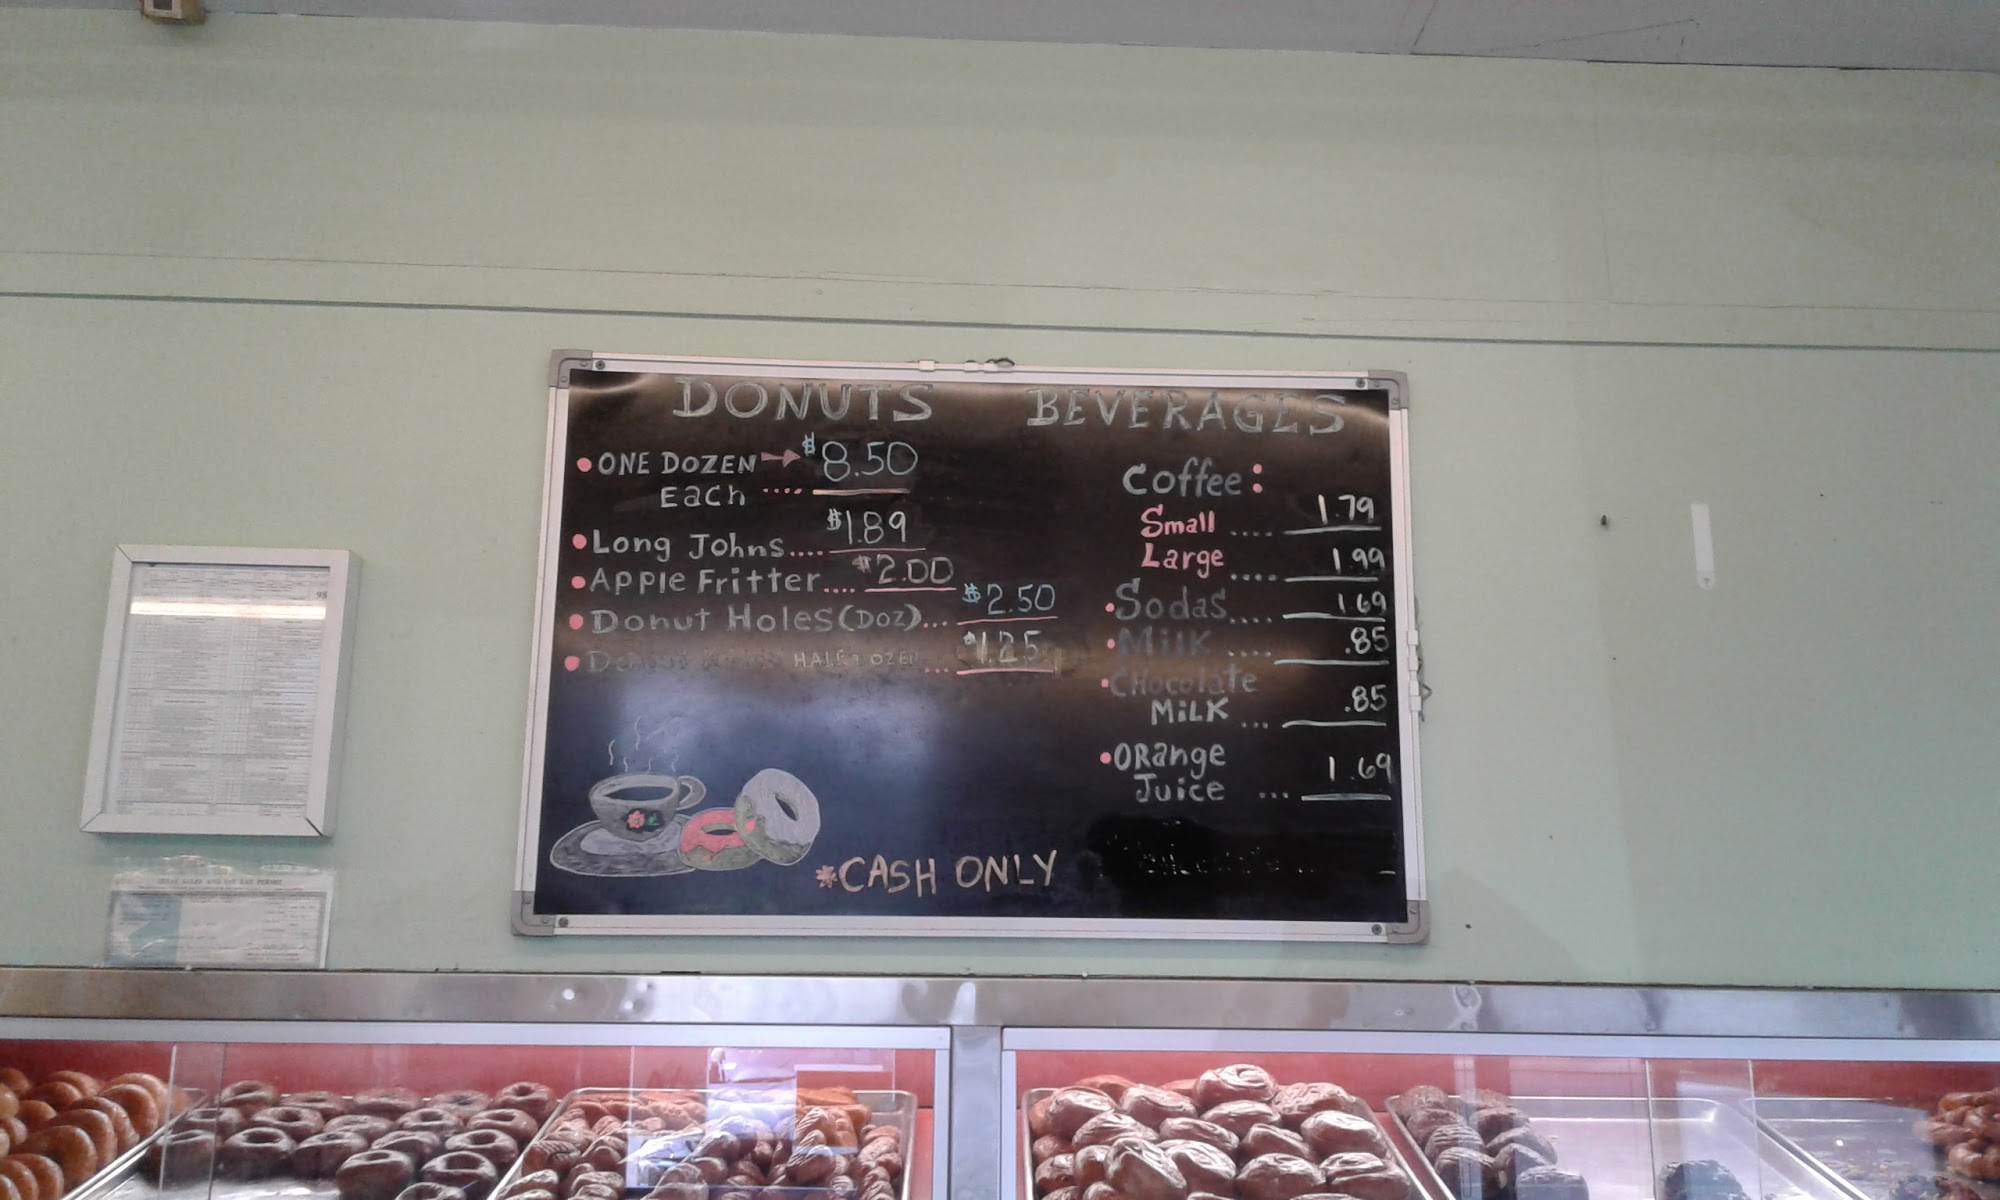 DONUTS
• ONE DOZEN → $8.50
Each ....
• Long Johns.... $1.89
• Apple Fritter.... $2.00
• Donut Holes (Doz)... $2.50
HALF DOZEN ... $1.25
*CASH ONLY
BEVERAGES
Coffee:
Small .... 1.79
Large .... 1.99
• Sodas.... 1.69
• Milk .... .85
• CHocolate
MiLK ... .85
• ORange
Juice ... 1.69